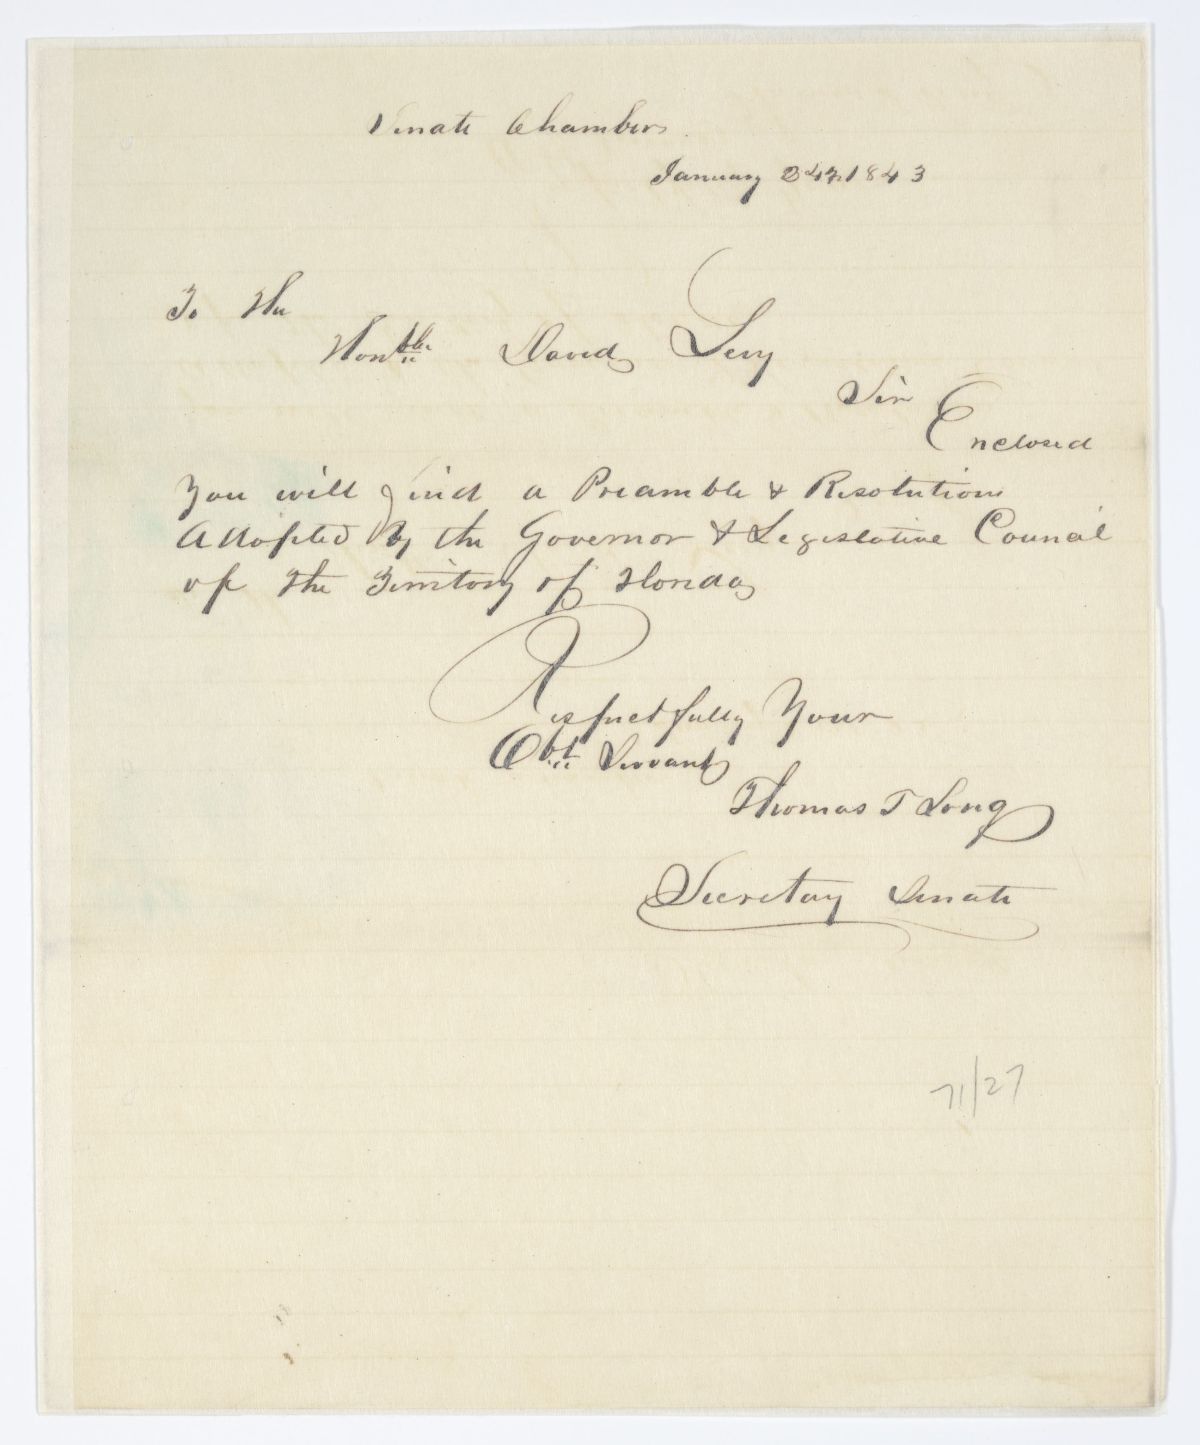 Senate Chambers
January 24th 1843
To the
Honble David Levy
Sir
Enclosed
You will find a Preamble & Resolutions
Adopted by the Governor & Legislative Council
of the Territory of Florida
Respectfully Your
Obt Servant
Thomas T Long
Secretary Senate
71/27